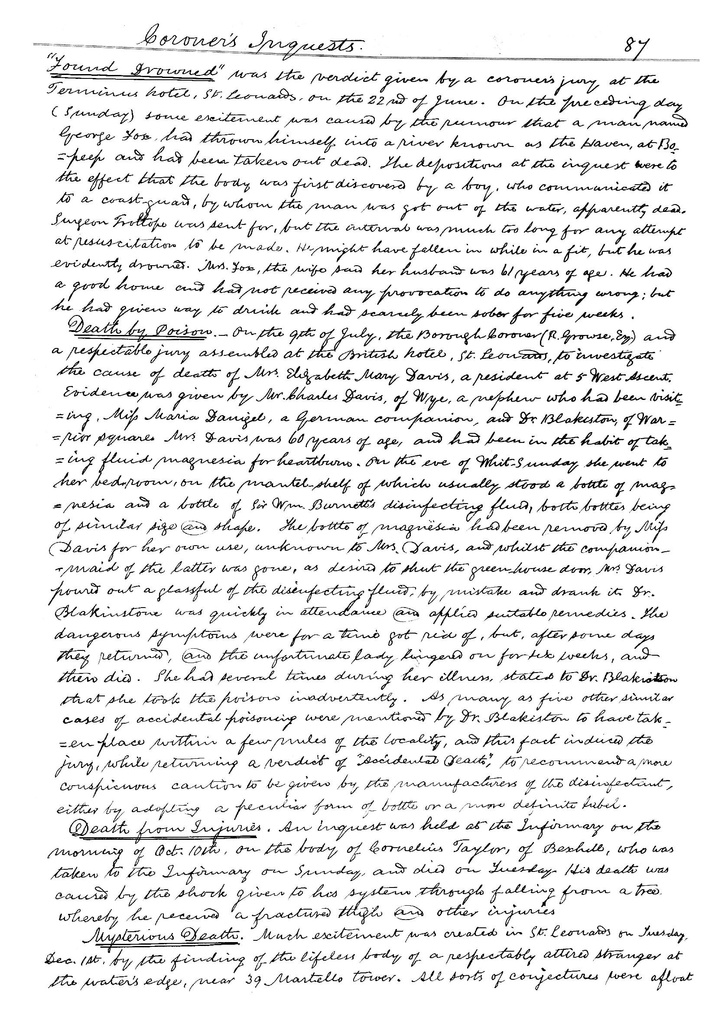 Coroner's Inquests. 87
"Found Drowned" was the verdict given by a coroner's jury at the
Terminus hotel, St. Leonards, on the 22nd of June. On the preceding day
(Sunday) some excitement was caused by the rumour that a man named
George Fox, had thrown himself into a river known as the Haven, at Bo-
=peep and had been taken out dead. The depositions at the inquest were to
the effect that the body was first discovered by a boy, who communicated it
to a coast-guard, by whom the man was got out of the water, apparently dead.
Surgeon Trollope was sent for, but the interval was much too long for any attempt
at resuscitation to be made. He might have fallen in while in a fit, but he was
evidently drowned. Mrs. Fox, the wife said her husband was 61 years of age. He had
a good home and had not received any provocation to do anything wrong; but
he had given way to drink and had scarcely been sober for five weeks.
Death by Poison. — On the 9th of July, the Borough Coroner (R. Growse, Esq) and
a respectable jury assembled at the British hotel, St. Leonards, to investigate
the cause of death of Mrs. Elizabeth Mary Davis, a resident at 5 West Ascent.
Evidence was given by Mr. Charles Davis, of Wye, a nephew who had been visit=
=ing, Miss Maria Daugel, a German companion, and Dr Blakiston, of War=
=rior square Mrs. Davis was 60 years of age, and had been in the habit of tak=
=ing fluid magnesia for heartburn. On the eve of Whit-Sunday she went to
her bed-room, on the mantel-shelf of which usually stood a bottle of mag=
=nesia and a bottle of Sir Wm. Burnett's disinfecting fluid, both bottles being
of similar size and shape. The bottle of magnesia had been removed by Miss
Davis for her own use, unknown to Mrs. Davis, and whilst the companion-
-maid of the latter was gone, as desired to shut the green-house door, Mrs. Davis
poured out a glassful of the disinfecting fluid, by mistake and drank it. Dr.
Blakinstone was quickly in attendance and applied suitable remedies. The
dangerous symptoms were for a time got rid of, but, after some days
they returned, and the unfortunate lady lingered on for six weeks, and
then died. She had several times during her illness, stated to Dr. Blakiston
that she took the poison inadvertently. As many as five other similar
cases of accidental poisoning were mentioned by Dr. Blakiston to have tak=
=en place within a few miles of the locality, and this fact induced the
jury, while returning a verdict of "Accidental Death", to recommend a more
conspicuous caution to be given by the manufacturers of the disinfectant,
either by adopting a peculiar form of bottle or a more definite label.
Death from Injuries. An inquest was held at the Infirmary on the
morning of Oct. 10th, on the body of Cornelius Taylor, of Bexhill, who was
taken to the Infirmary on Sunday, and died on Tuesday. His death was
caused by the shock given to his system through falling from a tree
whereby he received a fractured thigh and other injuries
Mysterious Death. Much excitement was created in St. Leonards on Tuesday,
Dec. 1st. by the finding of the lifeless body of a respectably attired stranger at
the water's edge, near 39 Martello tower. All sorts of conjectures were afloat